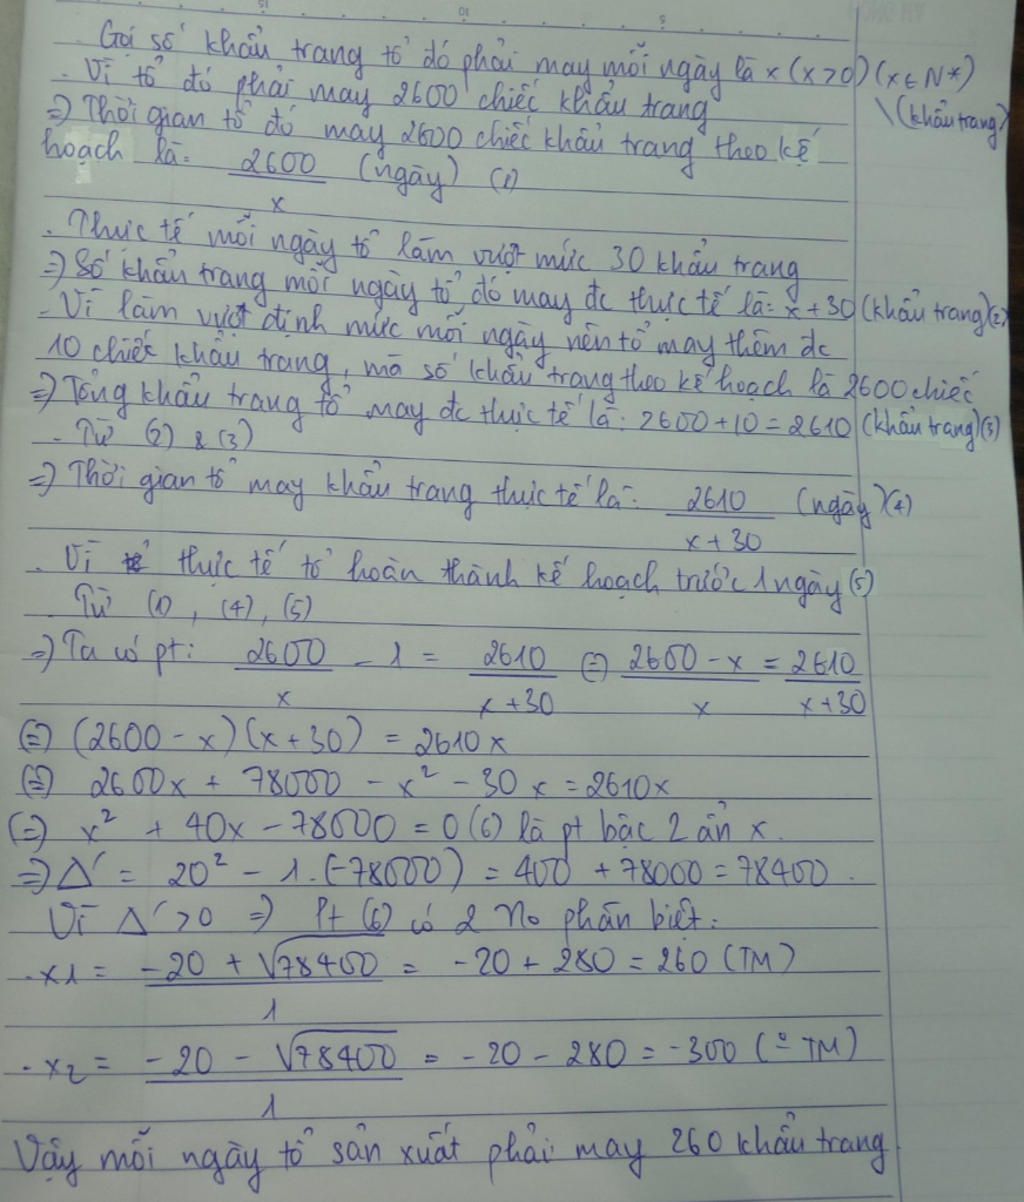 Gọi số khẩu trang tổ đó phải may mỗi ngày là x (x>0) (x∈N*)
(khẩu trang)
. Vì tổ đó phải may 2600 chiếc khẩu trang
=> Thời gian tổ đó may 2600 chiếc khẩu trang theo kế
hoạch là: 2600/x (ngày) (1)
. Thực tế mỗi ngày tổ làm vượt mức 30 khẩu trang
=> Số khẩu trang mỗi ngày tổ đó may đc thực tế là: x + 30 (khẩu trang)(2)
- Vì làm vượt định mức mỗi ngày nên tổ may thêm đc
10 chiếc khẩu trang, mà số khẩu trang theo kế hoạch là 2600 chiếc
=> Tổng khẩu trang tổ may đc thực tế là: 2600+10 = 2610 (khẩu trang)(3)
- Từ (2) & (3)
=> Thời gian tổ may khẩu trang thực tế là: 2610/(x+30) (ngày)(4)
. Vì thực tế tổ hoàn thành kế hoạch trước 1 ngày (5)
Từ (1), (4), (5)
=> Ta có pt: 2600/x - 1 = 2610/(x+30) (=) (2600-x)/x = 2610/(x+30)
(=) (2600 - x)(x+30) = 2610x
(=) 2600x + 78000 - x² - 30x = 2610x
(=) x² + 40x - 78000 = 0 (6) là pt bậc 2 ẩn x.
=> Δ' = 20² - 1.(-78000) = 400 + 78000 = 78400.
Vì Δ' > 0 => Pt (6) có 2 no phân biệt:
. x1 = (-20 + √78400)/1 = -20 + 280 = 260 (TM)
. x2 = (-20 - √78400)/1 = -20 - 280 = -300 (º TM)
Vậy mỗi ngày tổ sản xuất phải may 260 khẩu trang